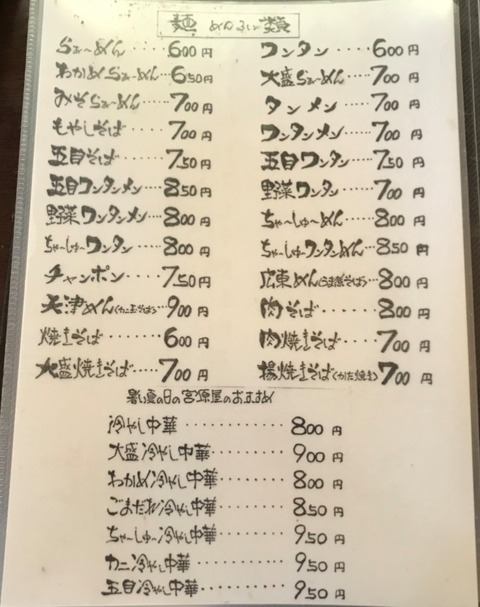 麺 めんるい 類
らぁーめん・・・600円
わかめらぁーめん・650円
みそらぁーめん・・700円
もやしそば・・・・700円
五目そば・・・・・750円
五目ワンタンメン・・・850円
野菜ワンタンメン・・・800円
ちゃーしゅーワンタン・・・・800円
チャンポン・・・・750円
天津めん(カニ玉そば)・・900円
焼きそば・・・・・600円
大盛焼きそば・・・・・700円
ワンタン・・・・・600円
大盛らぁーめん・・700円
タンメン・・・・・700円
ワンタンメン・・・700円
五目ワンタン・・・750円
野菜ワンタン・・・700円
ちゃーしゅーめん・・・800円
ちゃーしゅーワンタンめん・・850円
広東めん(うま煮そば)・・800円
肉そば・・・・・・800円
肉焼きそば・・・・700円
揚焼きそば(かた焼き)700円
暑い夏の日の宮原屋のおすすめ
冷やし中華・・・・・・・・・・・800円
大盛冷やし中華・・・・・・・・・900円
わかめ冷やし中華・・・・・・・・800円
ごまだれ冷やし中華・・・・・・・850円
ちゃーしゅー冷やし中華・・・・・・950円
カニ冷やし中華・・・・・・・・・950円
五目冷やし中華・・・・・・・・・950円